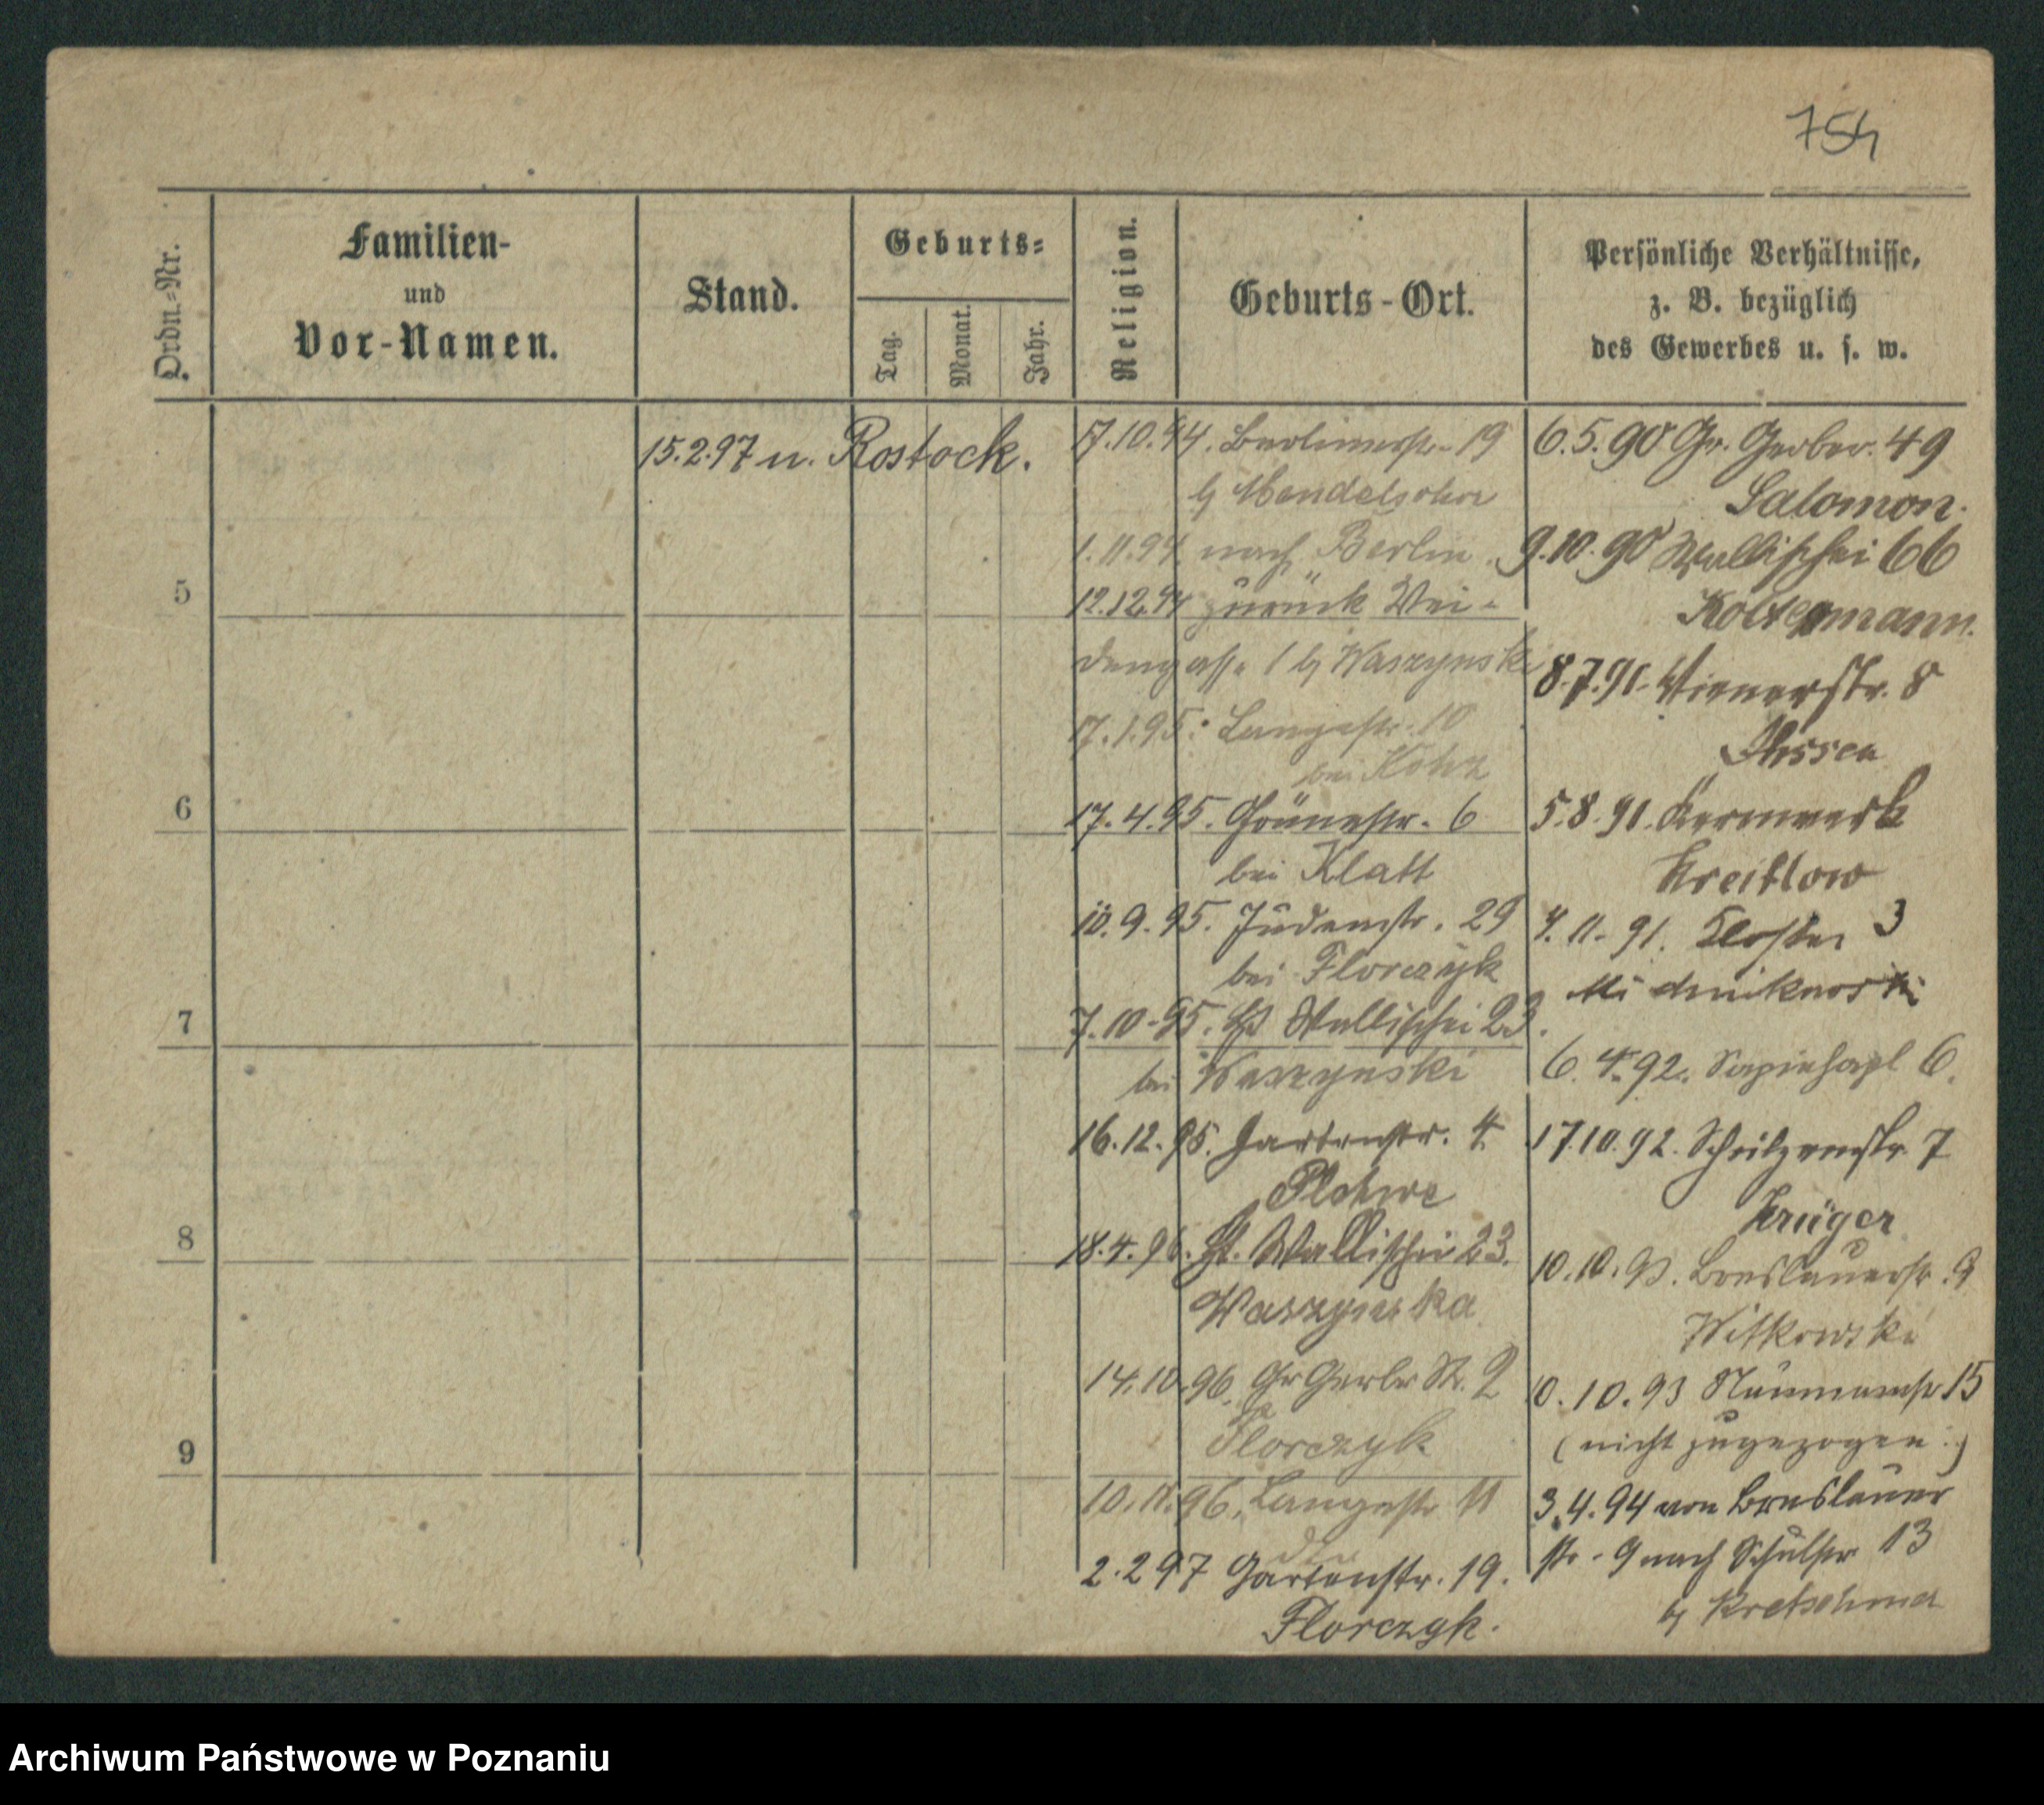 754
Ordn.-Nr.
Familien-
und
Vor-Namen.
Stand.
Geburts-
Tag.
Monat.
Jahr.
Religion.
Geburts-Ort.
Persönliche Verhältnisse,
z. B. bezüglich
des Gewerbes u. s. w.
5
6
7
8
9
15.2.97 n. Rostock.
17.10.94. Berlinerstr. 19
bj Mendelsohn
1.11.94. nach Berlin
12.12.94 zurück Wei-
dengasse 1 bj Waszynski
17.1.95. Langestr. 10
bei
17.4.95. Grünestr. 6
bei Klatt
10.9.95. Judenstr. 29
bei Florczyk
7.10.95. Wallischei 23.
bei Waszynski
16.12.95. Gartenstr. 4
18.4.96. Wallischei 23.
Waszynska
14.10.96. Gr Gerber Str. 2
Florczyk
96. Langestr 11
2.2.97 Gartenstr. 19.
Florczyk.
6.5.90 Gr. Gerber. 49
Salomon.
9.10.90 Wallischei 66
8.7.91. Wienerstr. 8
5.8.91. Kernwerk
Kreitlow
11. 91. Kloster 3
6. 4. 92. Sapiehapl 6.
17.10.92. Schützenstr. 7
Krüger
Breslauerstr. 9
Witkowski
10.10.93 Naumannstr 15
(nicht zugezogen.)
3.4.94 von Breslauer
str. 9 nach Schulstr 13
bj Kretschmer
Archiwum Państwowe w Poznaniu